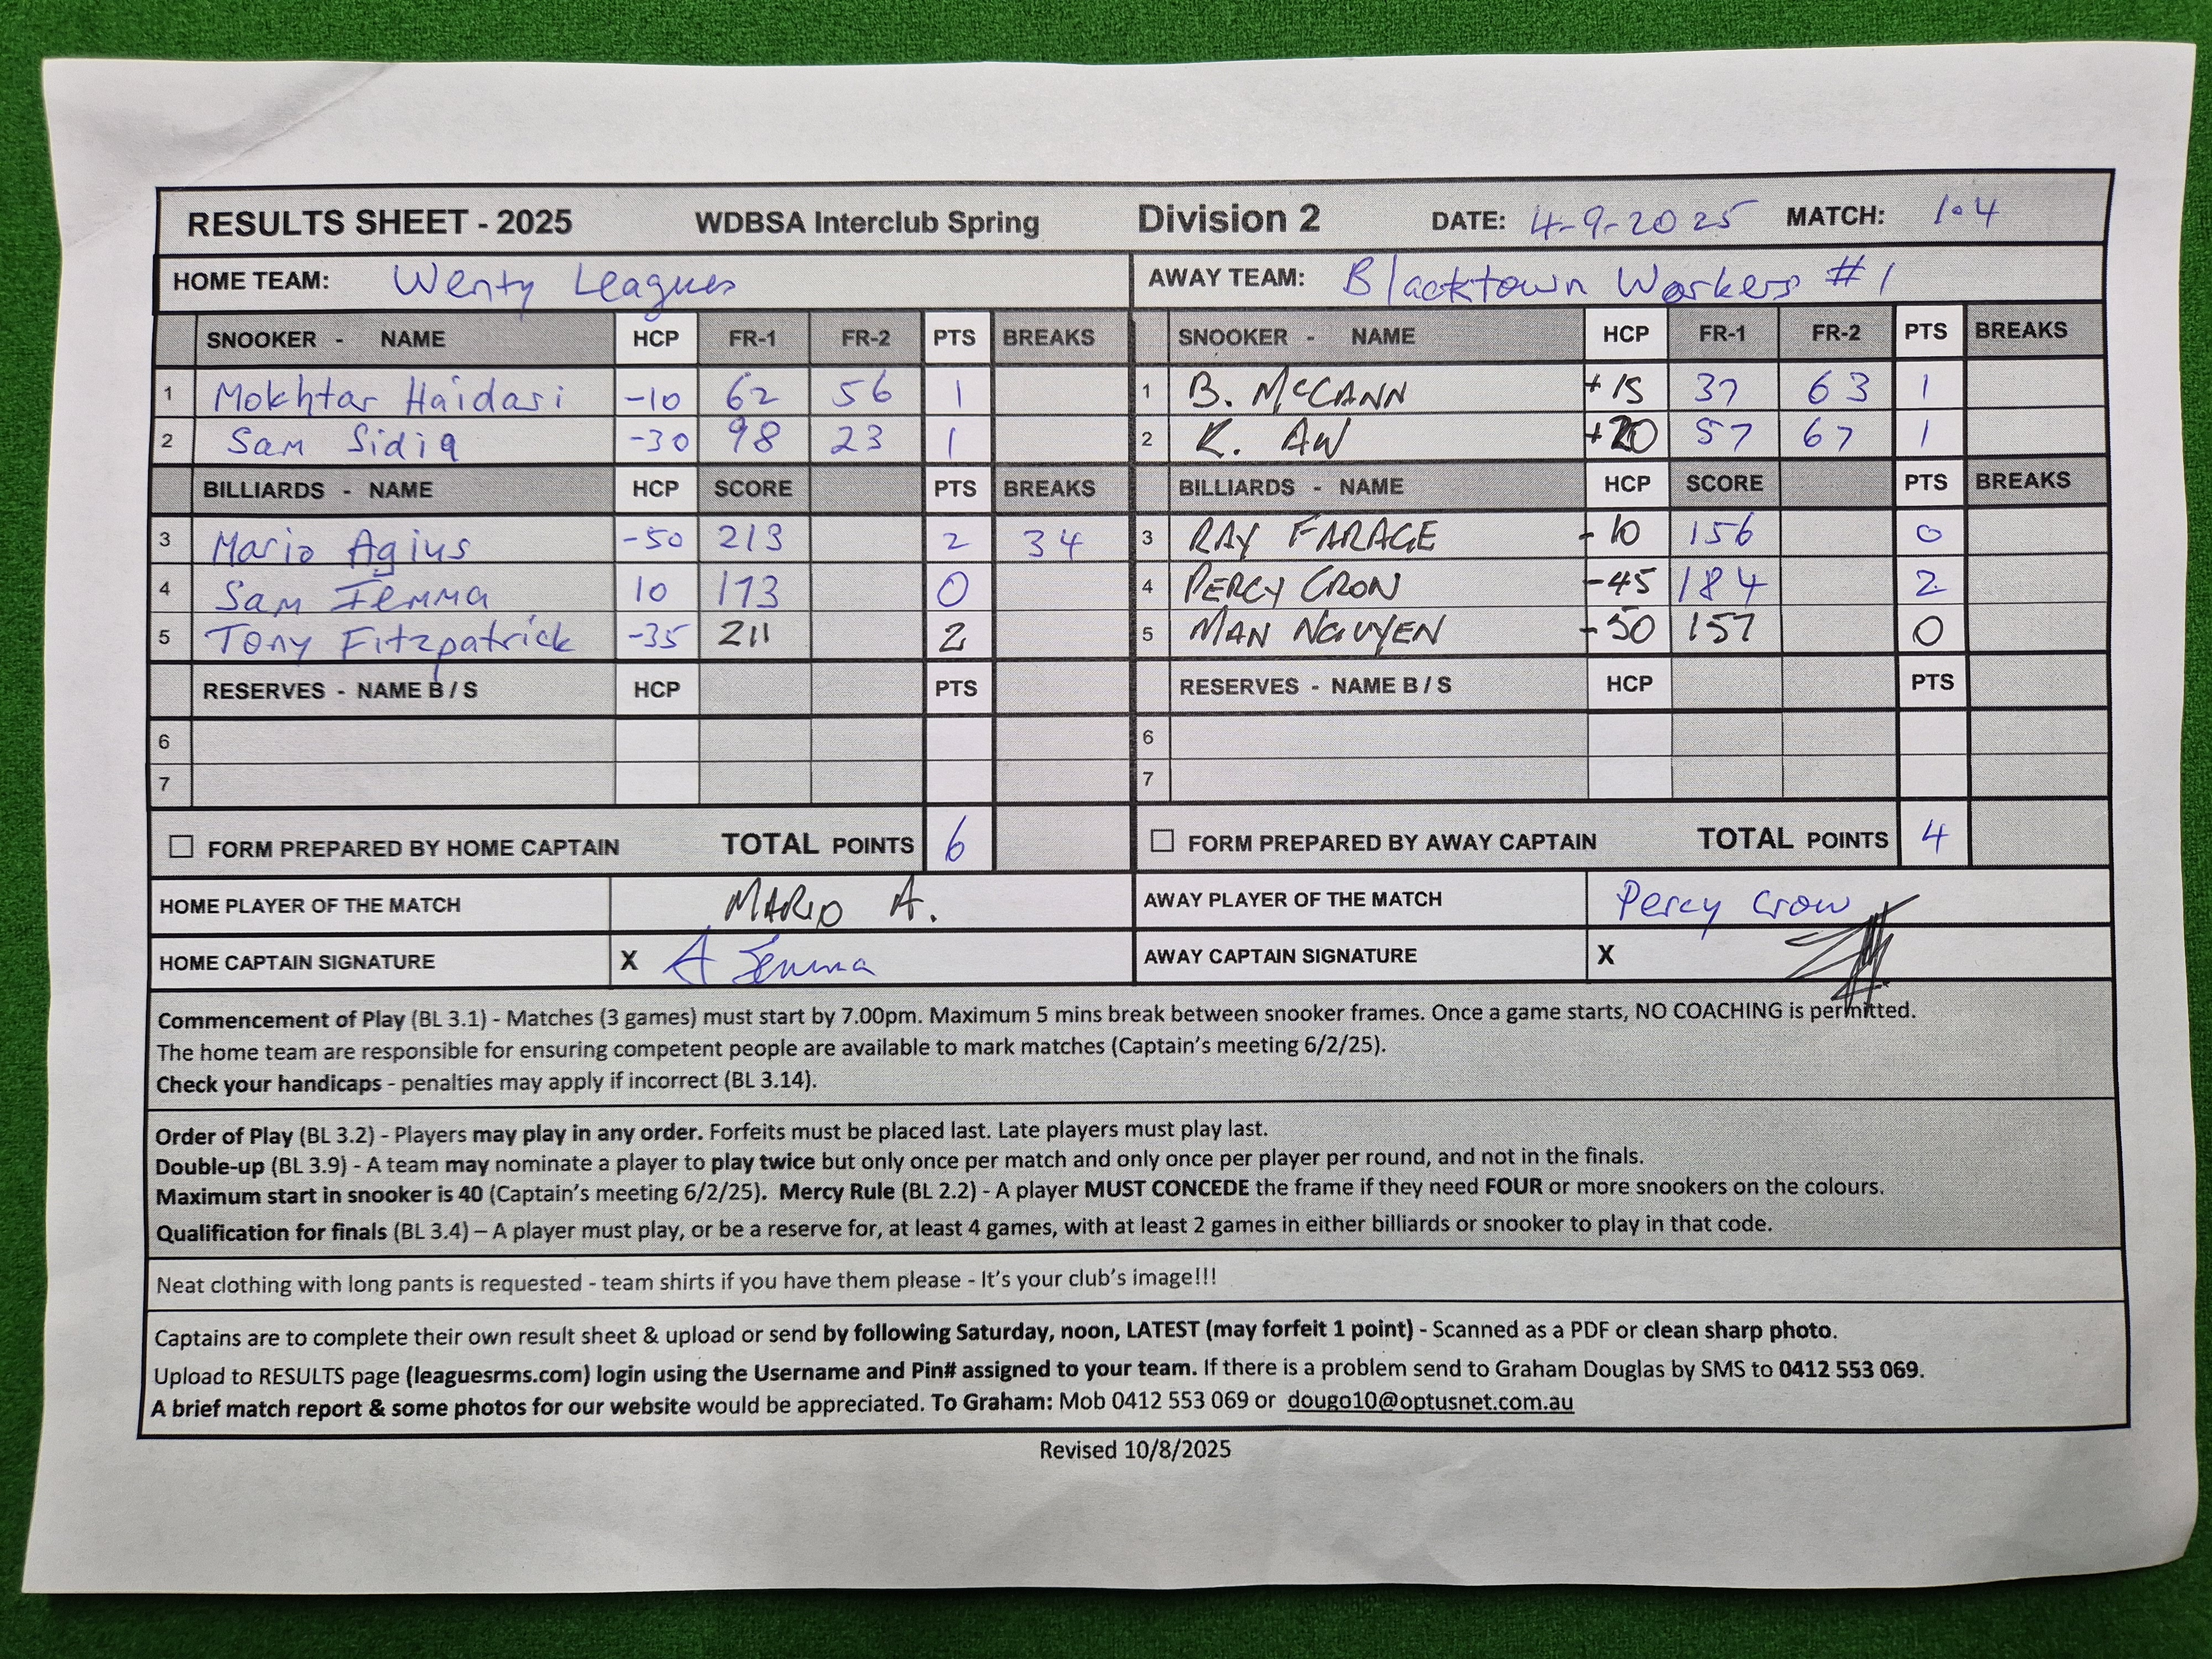 RESULTS SHEET - 2025 WDBSA Interclub Spring Division 2 DATE: 4-9-2025 MATCH: 1.4
HOME TEAM: Wenty Leagues AWAY TEAM: Blacktown Workers #1
SNOOKER - NAME HCP FR-1 FR-2 PTS BREAKS SNOOKER - NAME HCP FR-1 FR-2 PTS BREAKS
1 Mokhtar Haidari -10 62 56 1 1 B. McCANN +15 37 63 1
2 Sam Sidiq -30 98 23 1 2 K. AW +20 57 67 1
BILLIARDS - NAME HCP SCORE PTS BREAKS BILLIARDS - NAME HCP SCORE PTS BREAKS
3 Mario Agius -50 213 2 34 3 RAY FARAGE -10 156 0
4 Sam Iemma 10 173 0 4 PERCY CRON -45 184 2
5 Tony Fitzpatrick -35 211 2 5 MAN NGUYEN -50 157 0
RESERVES - NAME B / S HCP PTS RESERVES - NAME B / S HCP PTS
6 6
7 7
FORM PREPARED BY HOME CAPTAIN TOTAL POINTS 6 FORM PREPARED BY AWAY CAPTAIN TOTAL POINTS 4
HOME PLAYER OF THE MATCH MARIO A. AWAY PLAYER OF THE MATCH Percy Crow
HOME CAPTAIN SIGNATURE X A Iemma AWAY CAPTAIN SIGNATURE X
Commencement of Play (BL 3.1) - Matches (3 games) must start by 7.00pm. Maximum 5 mins break between snooker frames. Once a game starts, NO COACHING is permitted.
The home team are responsible for ensuring competent people are available to mark matches (Captain's meeting 6/2/25).
Check your handicaps - penalties may apply if incorrect (BL 3.14).
Order of Play (BL 3.2) - Players may play in any order. Forfeits must be placed last. Late players must play last.
Double-up (BL 3.9) - A team may nominate a player to play twice but only once per match and only once per player per round, and not in the finals.
Maximum start in snooker is 40 (Captain's meeting 6/2/25). Mercy Rule (BL 2.2) - A player MUST CONCEDE the frame if they need FOUR or more snookers on the colours.
Qualification for finals (BL 3.4) – A player must play, or be a reserve for, at least 4 games, with at least 2 games in either billiards or snooker to play in that code.
Neat clothing with long pants is requested - team shirts if you have them please - It's your club's image!!!
Captains are to complete their own result sheet & upload or send by following Saturday, noon, LATEST (may forfeit 1 point) - Scanned as a PDF or clean sharp photo.
Upload to RESULTS page (leaguesrms.com) login using the Username and Pin# assigned to your team. If there is a problem send to Graham Douglas by SMS to 0412 553 069.
A brief match report & some photos for our website would be appreciated. To Graham: Mob 0412 553 069 or dougo10@optusnet.com.au
Revised 10/8/2025